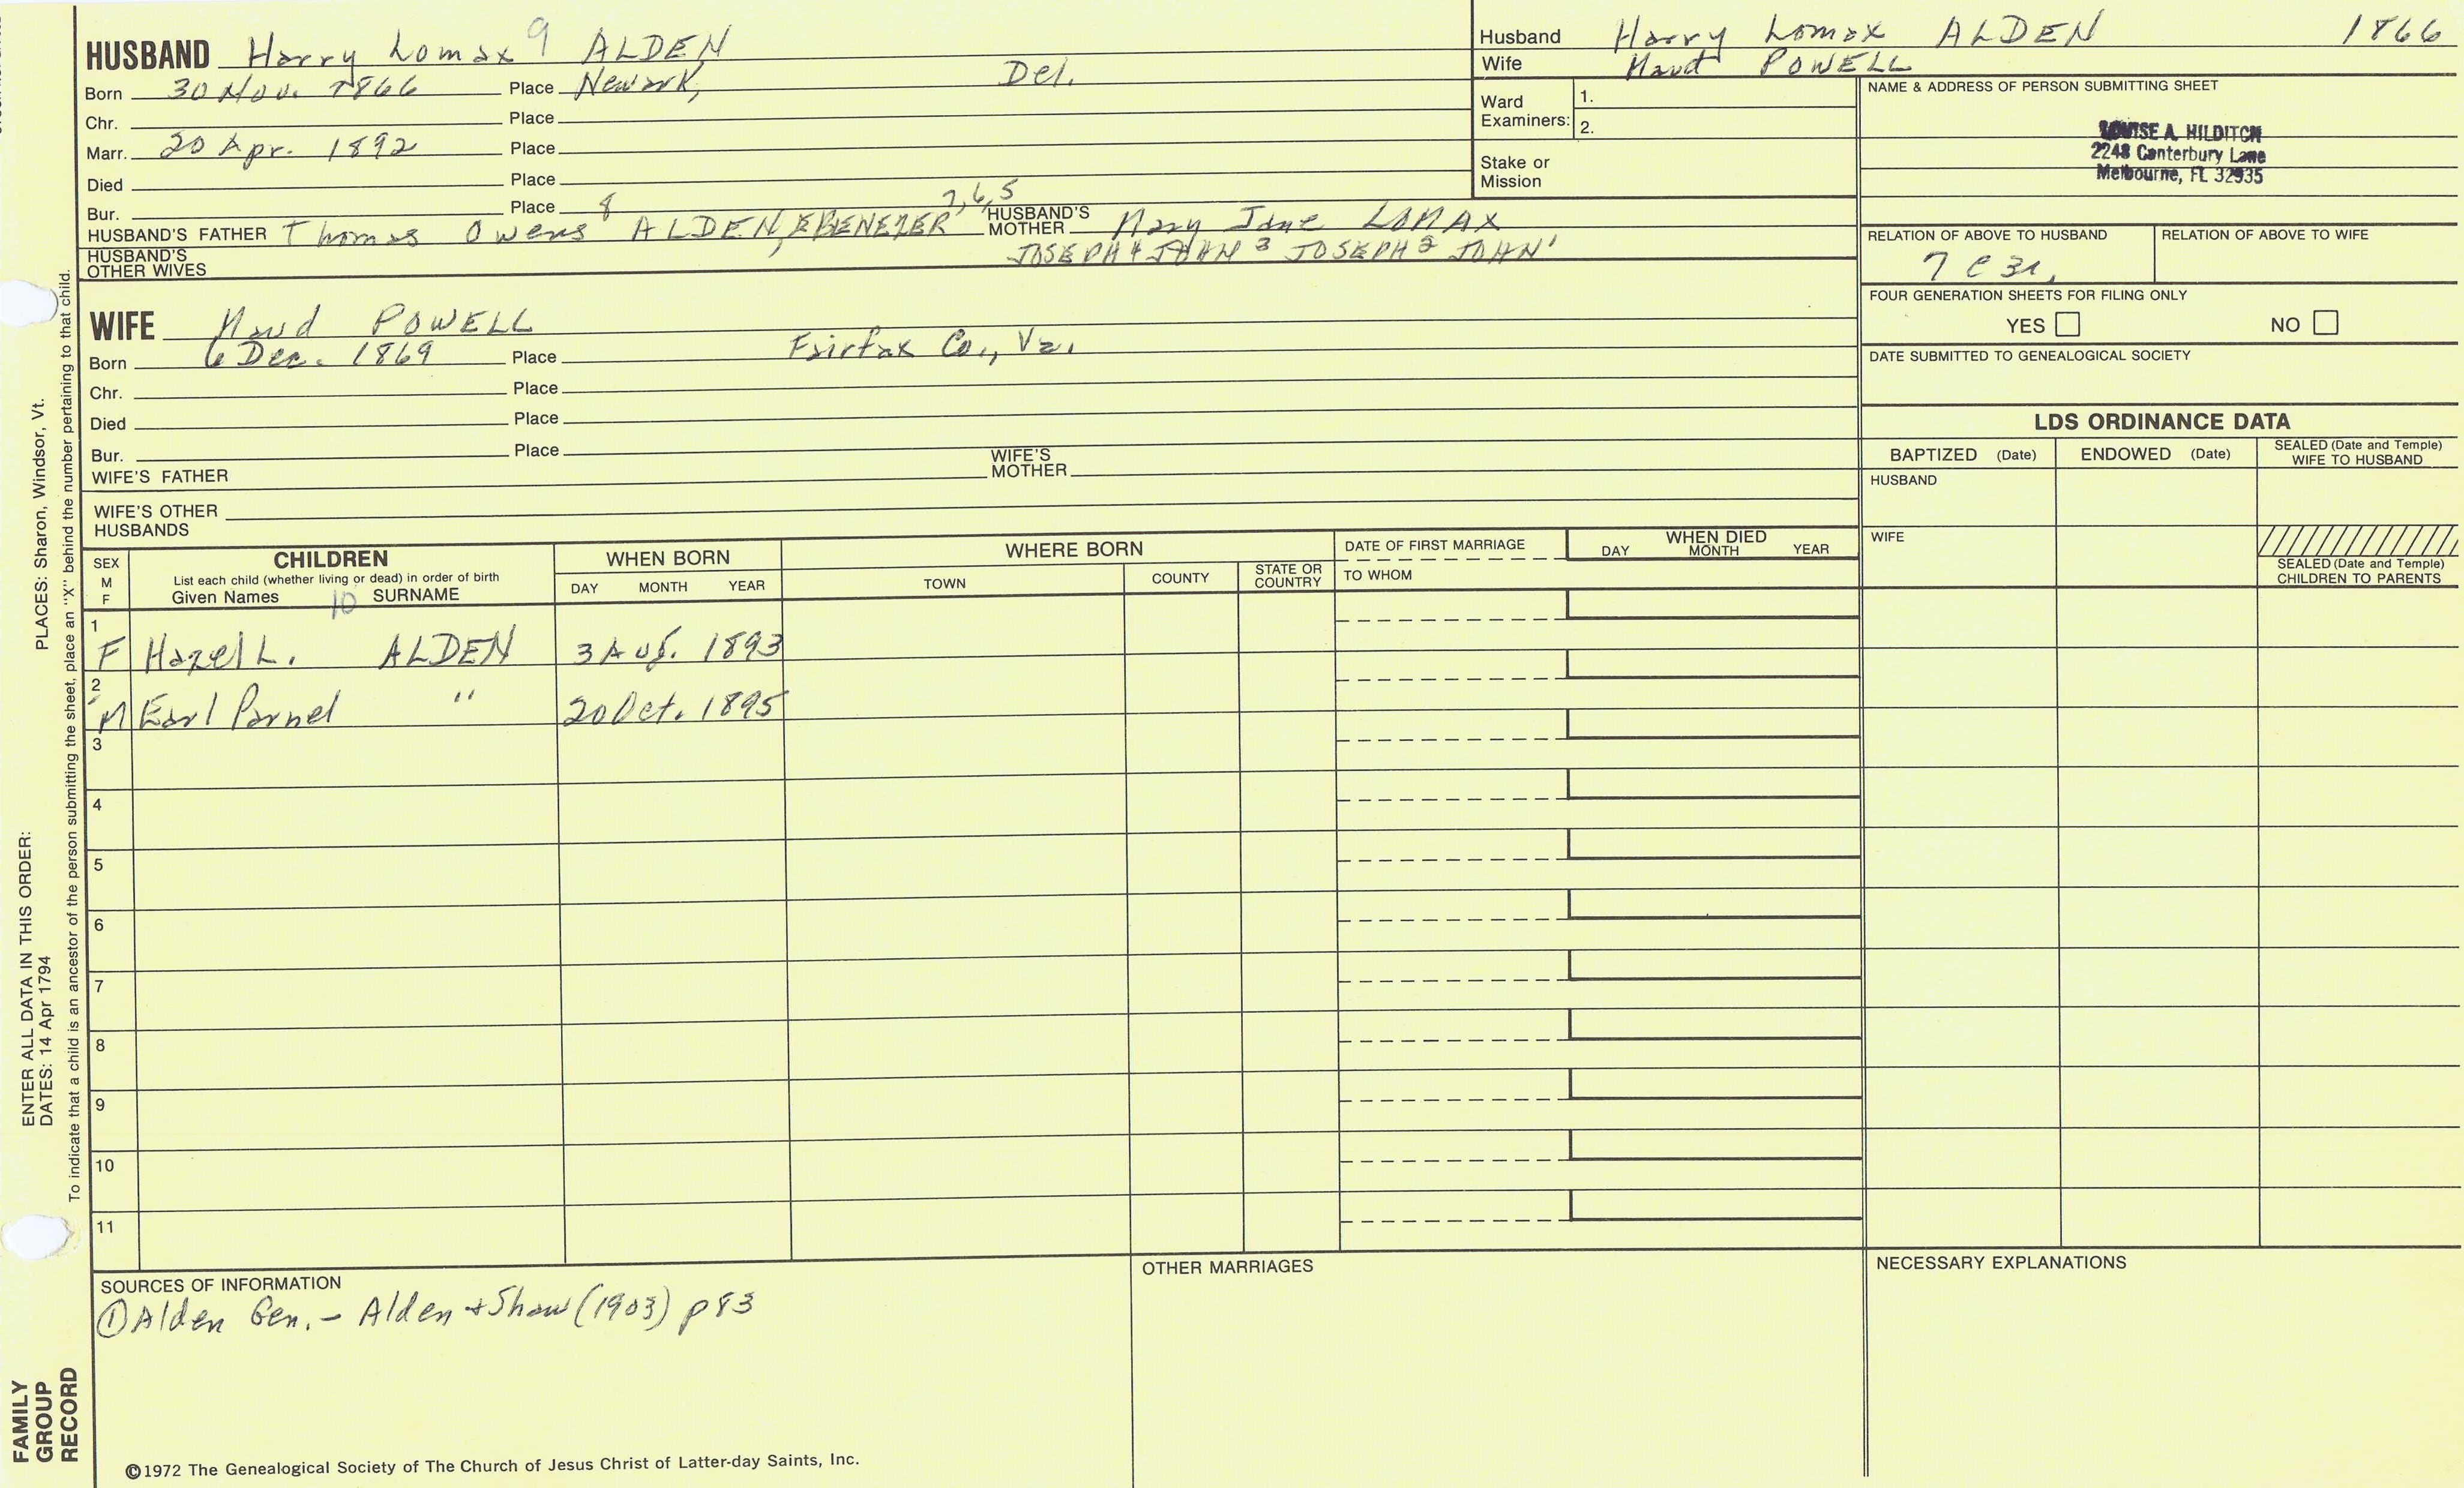 HUSBAND Harry Lomax 9 ALDEN
Born 30 Nov. 1866 Place Newark, Del.
Chr. Place
Marr. 20 Apr. 1892 Place
Died Place
Bur. Place
HUSBAND'S FATHER Thomas Owens 8 ALDEN, EBENEZER 7,6,5 HUSBAND'S MOTHER Mary Jane LOMAX
HUSBAND'S OTHER WIVES JOSEPH 4 JOHN 3 JOSEPH 2 JOHN 1
Husband Harry Lomax ALDEN 1866
Wife Maud POWELL
Ward Examiners: 1.
2.
Stake or Mission
NAME & ADDRESS OF PERSON SUBMITTING SHEET
LOUISE A. HILDITCH
2248 Canterbury Lane
Melbourne, FL 32935
RELATION OF ABOVE TO HUSBAND RELATION OF ABOVE TO WIFE
7 C 3r.
FOUR GENERATION SHEETS FOR FILING ONLY
YES NO
DATE SUBMITTED TO GENEALOGICAL SOCIETY
WIFE Maud POWELL
Born 6 Dec. 1869 Place Fairfax Co., Va.
Chr. Place
Died Place
Bur. Place
WIFE'S FATHER WIFE'S MOTHER
WIFE'S OTHER HUSBANDS
LDS ORDINANCE DATA
BAPTIZED (Date) ENDOWED (Date) SEALED (Date and Temple) WIFE TO HUSBAND
HUSBAND
WIFE
SEALED (Date and Temple) CHILDREN TO PARENTS
SEX M F
CHILDREN
List each child (whether living or dead) in order of birth
Given Names 10 SURNAME
WHEN BORN
DAY MONTH YEAR
WHERE BORN
TOWN COUNTY STATE OR COUNTRY
DATE OF FIRST MARRIAGE
TO WHOM
WHEN DIED
DAY MONTH YEAR
1 F Hazel L. ALDEN 3 Aug. 1893
2 M Earl Parnel " 20 Oct. 1895
3
4
5
6
7
8
9
10
11
SOURCES OF INFORMATION
① Alden Gen. - Alden + Shaw (1903) p 83
OTHER MARRIAGES
NECESSARY EXPLANATIONS
©1972 The Genealogical Society of The Church of Jesus Christ of Latter-day Saints, Inc.
FAMILY GROUP RECORD
ENTER ALL DATA IN THIS ORDER:
DATES: 14 Apr 1794 PLACES: Sharon, Windsor, Vt.
To indicate that a child is an ancestor of the person submitting the sheet, place an "X" behind the number pertaining to that child.